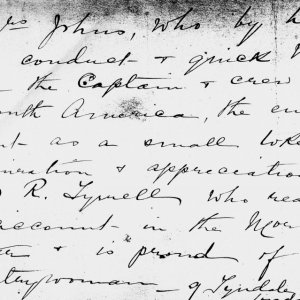 rs Johns, who by h
conduct & quick
the Captain & crew
outh America, the en
t as a small toke
neration & appreciation
R. Tyrrell who rea
account in the Mor
& is proud of
ntrywoman — 9 Tyndale